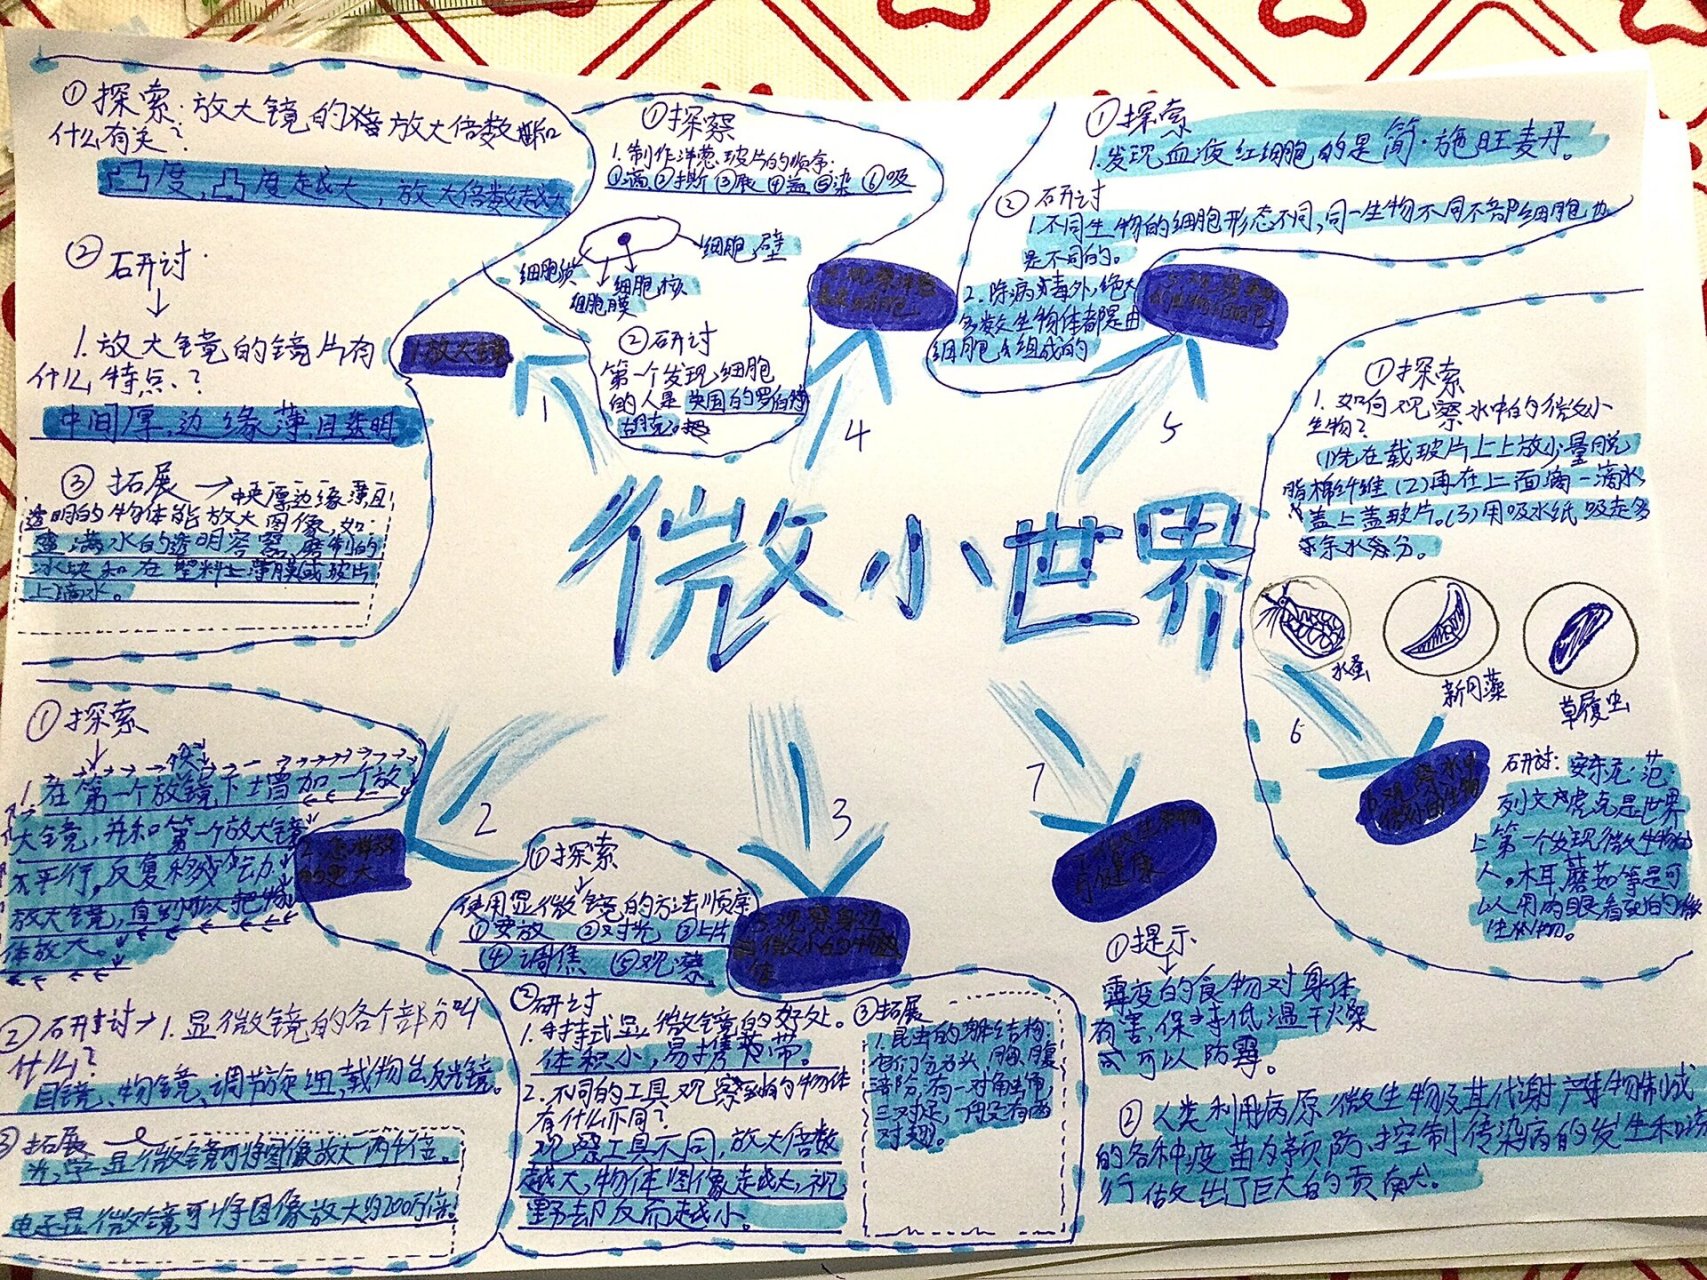 微小世界
①探索:放大镜的放大倍数和
什么有关?
凸度,凸度越大,放大倍数越大
②研讨.
1.放大镜的镜片有
什么特点?
中间厚,边缘薄,且透明
③拓展→中央厚边缘薄且
透明的物体能放大图像,如:
装满水的透明容器,磨制的
冰块和在塑料上薄膜或玻片
上滴水。
1放大镜
1
①探察
1.制作洋葱玻片的顺序:
①滴②撕③展④盖⑤染⑥吸
细胞壁
细胞质
细胞核
细胞膜
②研讨
第一个发现细胞
的人是英国的罗伯特
胡克。
4
①探索
1.发现血液红细胞的是简·施旺麦丹。
②研讨
1.不同生物的细胞形态不同,同一生物不同部细胞也
是不同的。
2.除病毒外,绝大
多数生物体都是由
细胞组成的
5
①探索
1.如何观察水中的微小
生物?
(1)先在载玻片上上放少量脱
脂棉纤维(2)再在上面滴一滴水
盖上盖玻片。(3)用吸水纸吸走多
余水分。
水蚤
新月藻
草履虫
6
研讨:安东尼·范·
列文虎克是世界
上第一个发现微生物的
人。木耳,蘑菇等是可
以用肉眼看到的微
生物。
①探索
1.在第一个放镜下增加一个放
大镜,并和第一个放大镜
平行,反复移动
放大镜,直到可以把物
体放大。
2
②研讨→1.显微镜的各个部分叫
什么?
目镜、物镜、调节旋钮、载物台反光镜。
③拓展
光学显微镜可将图像放大一两千倍。
电子显微镜可将图像放大约200万倍。
①探索
使用显微镜的方法顺序
①安放 ②对光 ③上片
④调焦 ⑤观察
3
3.观察身边
微小的物
体
②研讨
1.手持式显微镜的好处。
体积小,易携带。
2.不同的工具观察到的物体
有什么不同?
观察工具不同,放大倍数
越大,物体图像越大,视
野却反而越小。
③拓展
1.昆虫的身体结构:
它们分为头,胸,腹
三对足,一般是有两
对翅。
7
健康
①提示
霉变的食物对身体
有害,保持低温干燥
可以防霉。
②人类利用病原微生物及其代谢产物制成
的各种疫苗为预防、控制传染病的发生和流
行做出了巨大的贡献。